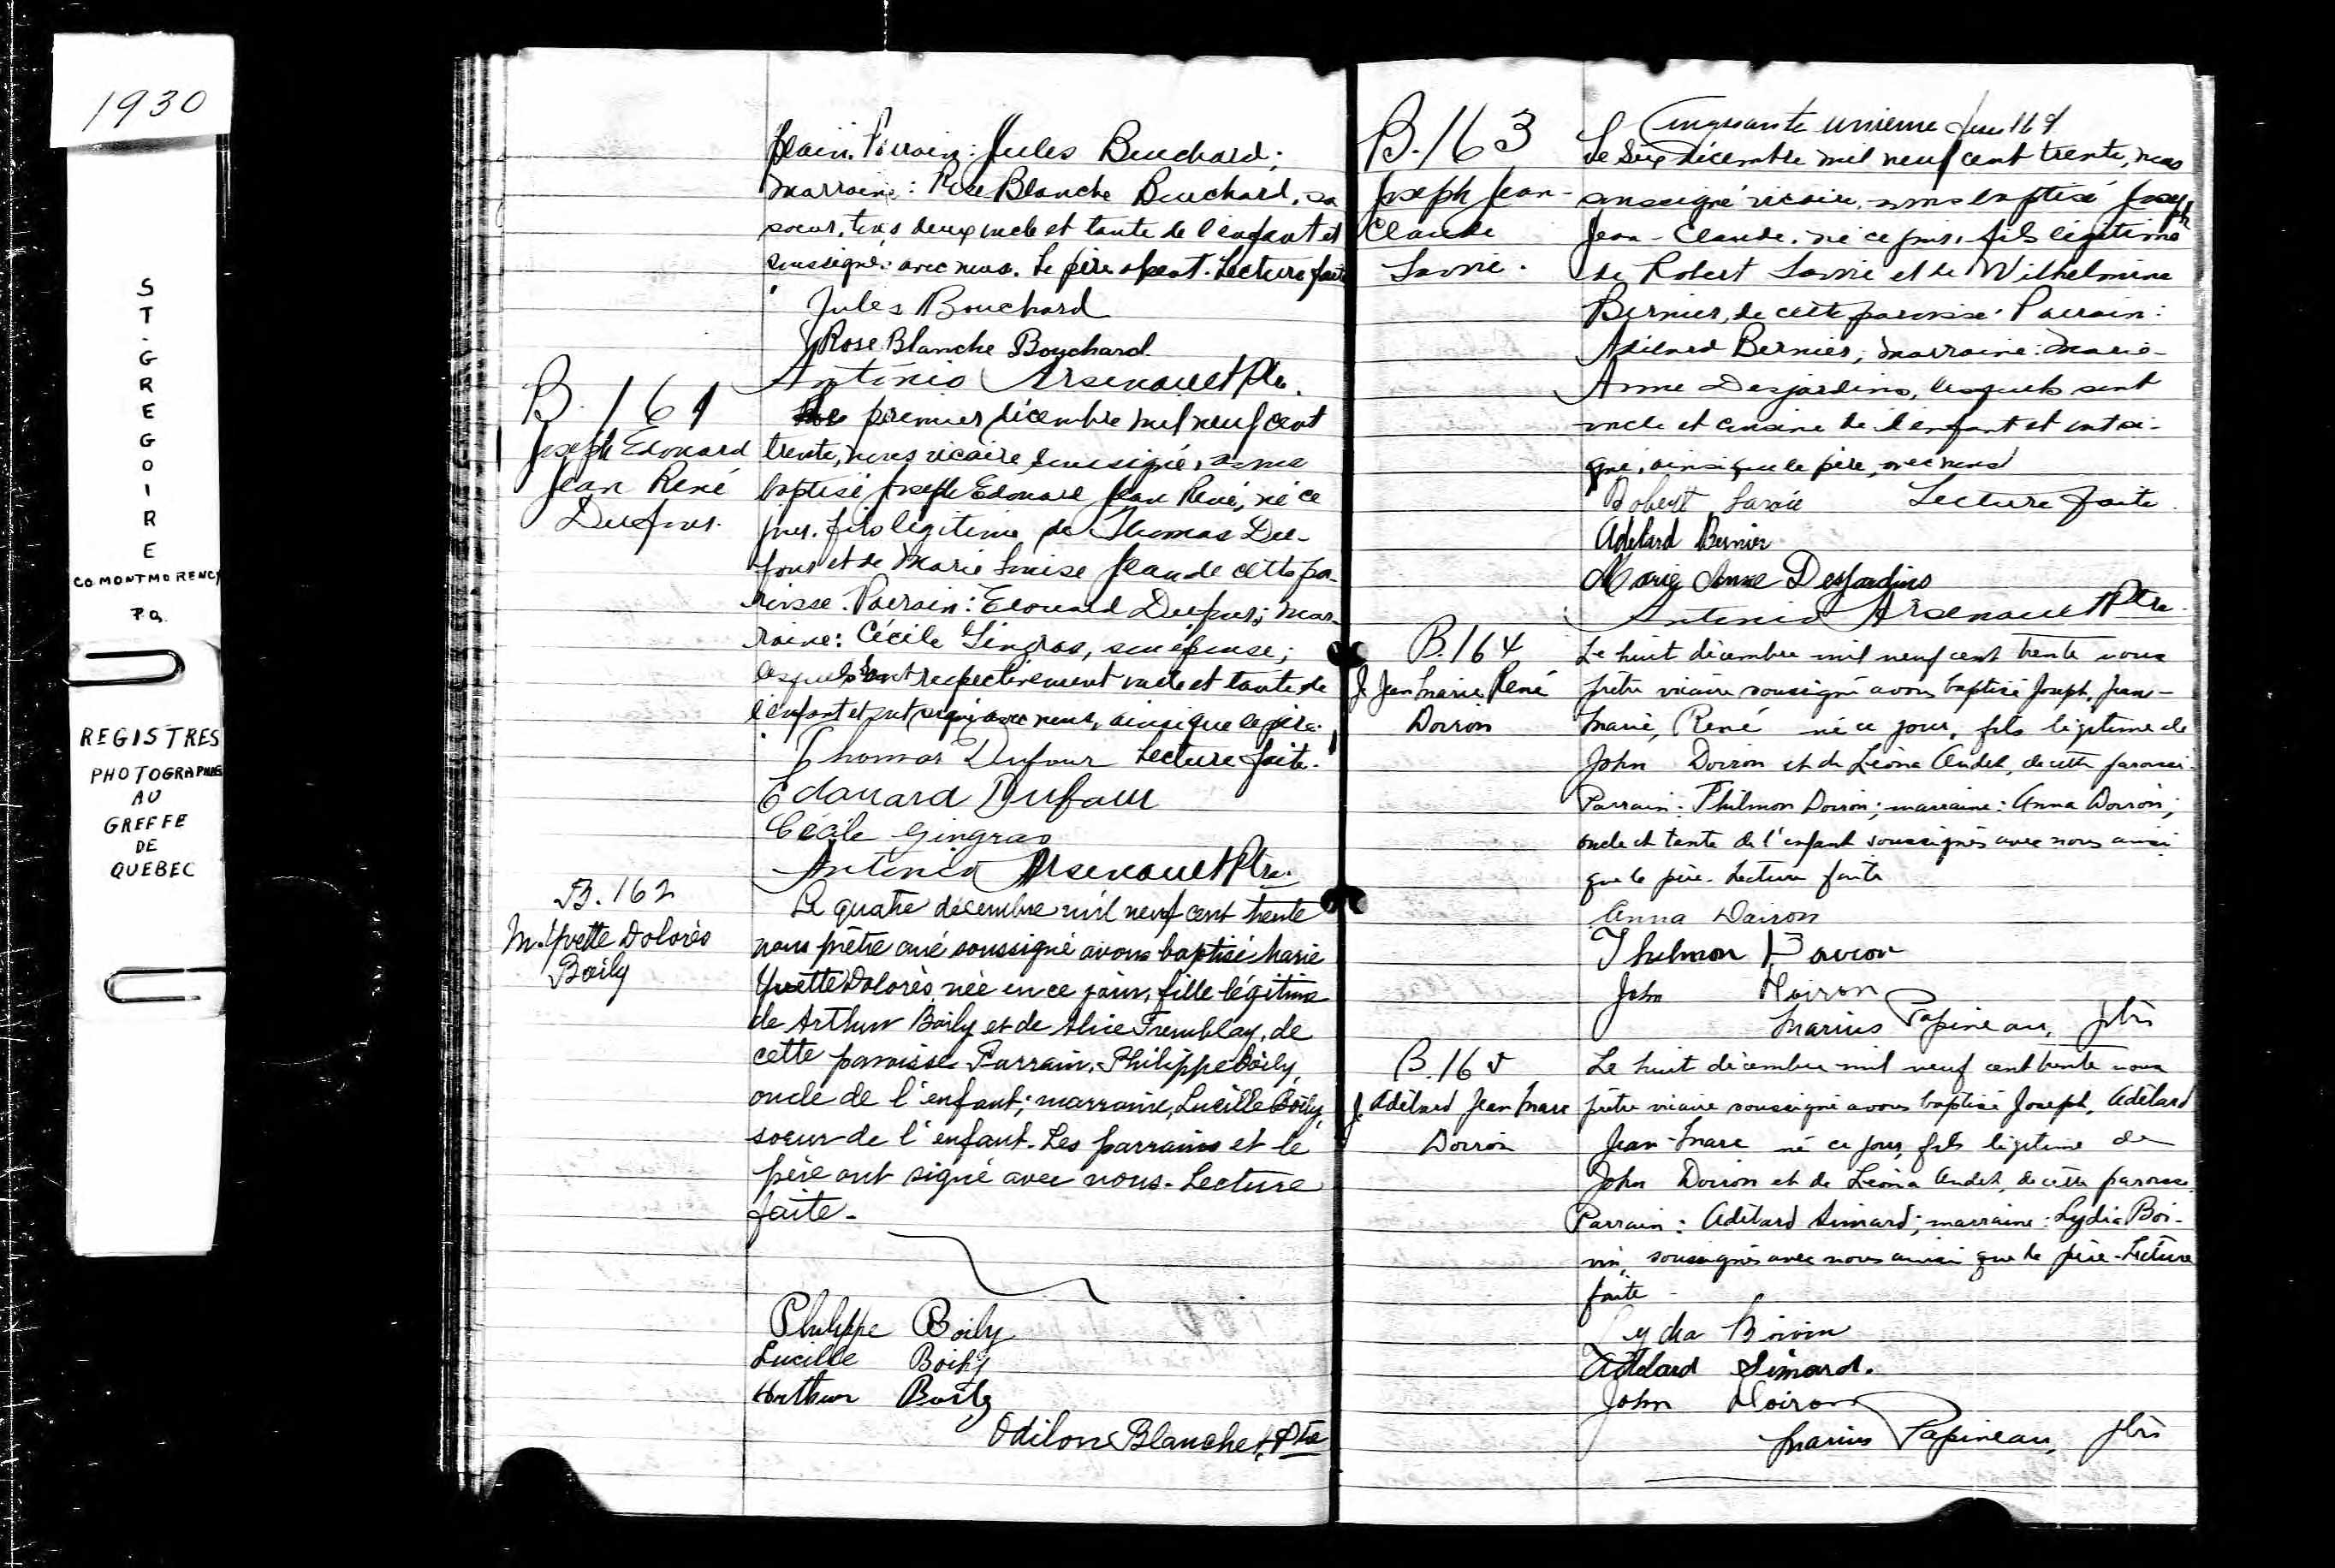 1930
ST. GREGOIRE
CO. MONTMORENCY
P.Q.
REGISTRES
PHOTOGRAPHIES
AU
GREFFE
DE
QUEBEC
Parrain: Jules Bouchard;
marraine: Rose-Blanche Bouchard, sa
soeur, tous deux oncle et tante de l'enfant et
soussignés avec nous. Le père absent. Lecture faite
Jules Bouchard
Rose Blanche Bouchard
Antonio Arsenault Ptre.
B. 161
Joseph Edouard
Jean René
Dufour.
Le premier décembre mil neuf cent
trente, nous vicaire soussigné, avons
baptisé Joseph Edouard Jean René, né ce
jour, fils légitime de Thomas Du-
four et de Marie Louise Jean de cette pa-
roisse. Parrain: Edouard Dufour; mar-
raine: Cécile Gingras, son épouse;
lesquels sont respectivement oncle et tante de
l'enfant et ont signé avec nous, ainsi que le père.
Thomas Dufour Lecture faite.
Edouard Dufour
Cécile Gingras
Antonio Arsenault Ptre.
B. 162
M. Yvette Dolorès
Boily
Le quatre décembre mil neuf cent trente
nous prêtre curé soussigné avons baptisé Marie
Yvette Dolorès, née en ce jour, fille légitime
de Arthur Boily et de Alice Tremblay, de
cette paroisse. Parrain, Philippe Boily,
oncle de l'enfant; marraine, Lucille Boily,
soeur de l'enfant. Les parrains et le
père ont signé avec nous. Lecture
faite.
Philippe Boily
Lucille Boily
Arthur Boily
Odilon Blanchet, Ptre
Cinquante unième
B. 163
Joseph Jean-
Claude
Savoie.
Le six décembre mil neuf cent trente, nous
soussigné vicaire, avons baptisé Joseph
Jean-Claude, né ce jour, fils légitime
de Robert Savoie et de Wilhelmine
Bernier, de cette paroisse. Parrain:
Adélard Bernier; marraine: Marie-
Anne Desjardins, lesquels sont
oncle et cousine de l'enfant et ont si-
gné, ainsi que le père, avec nous
Robert Savoie Lecture faite.
Adélard Bernier
Marie Anne Desjardins
Antonio Arsenault Ptre.
B. 164
J. Jean Marie René
Doiron
Le huit décembre mil neuf cent trente nous
prêtre vicaire soussigné avons baptisé Joseph, Jean-
Marie, René né ce jour, fils légitime de
John Doiron et de Léona Audet, de cette paroisse.
Parrain: Philmon Doiron; marraine: Anna Doiron;
oncle et tante de l'enfant soussignés avec nous ainsi
que le père. Lecture faite
Anna Doiron
Philmon Doiron
John Doiron
Marius Papineau, ptre
B. 165
J. Adélard Jean Marc
Doiron
Le huit décembre mil neuf cent trente nous
prêtre vicaire soussigné avons baptisé Joseph, Adélard
Jean-Marc né ce jour, fils légitime de
John Doiron et de Léona Audet, de cette paroisse.
Parrain: Adélard Simard; marraine: Lydia Boi-
vin, soussignés avec nous ainsi que le père. Lecture
faite
Lydia Boivin
Adélard Simard.
John Doiron
Marius Papineau, ptre